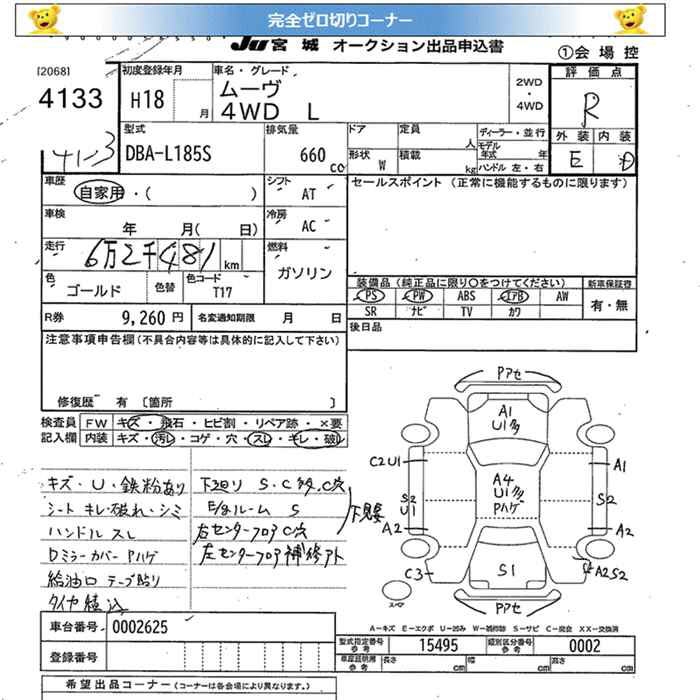 完全ゼロ切りコーナー
JU宮城 オークション出品申込書
①会場控
[2068]
4133
41-3
初度登録年月
H18 月
車名・グレード
ムーヴ
4WD L
2WD
・
4WD
評価点
R
外装 内装
E D
型式
DBA-L185S
排気量
660
cc
ドア 定員 人
形状 W 積載 kg
ディーラー・並行
モデル年式 年
ハンドル 左・右
車歴
自家用・( )
シフト
AT
車検
年 月( 日)
冷房
AC
走行
6万2千481km
燃料
ガソリン
色
ゴールド
色替
色コード
T17
R券 9,260 円
名変通知期限 月 日
セールスポイント (正常に機能するものに限ります)
装備品 (純正品に限り○をつけてください)
新車保証書
PS PW ABS エアB AW
SR ナビ TV カワ
有・無
後日品
注意事項申告欄(不具合内容等は具体的に記入して下さい)
修復歴 有 〔箇所 〕
検査員記入欄
FW キズ・飛石・ヒビ割・リペア跡・×要
内装 キズ・汚レ・コゲ・穴・スレ・キレ・破レ
キズ・U・鉄粉あり
シートキレ・破れ・シミ
ハンドルスレ
Dミラーカバー Pハゲ
給油口 テープ貼り
タイヤ積込
下廻り S・C多、C穴
E/gルーム S
右センターフロアC穴
左センターフロア補修アト
下見要
Pアセ
A1
U1多
C2U1
A1
A4
U1多
Pハゲ
S2
U1
S2
A2
A2
C3
S1
A2S2
スペア
Pアセ
A-キズ E-エクボ U-凹み W-補修跡 S-サビ C-腐食 XX-交換済
車台番号 0002625
登録番号
型式指定番号 参考 15495
類別区分番号 参考 0002
車庫証明用 参考 長さ cm 幅 cm 高さ cm
希望出品コーナー (コーナーは各会場により異なります)